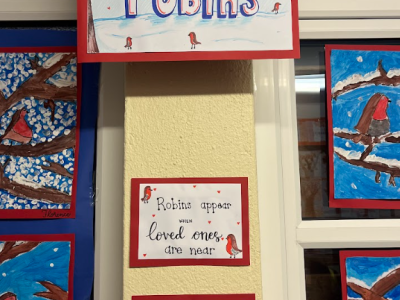 Robins
Robins appear
WHEN
loved ones
are near